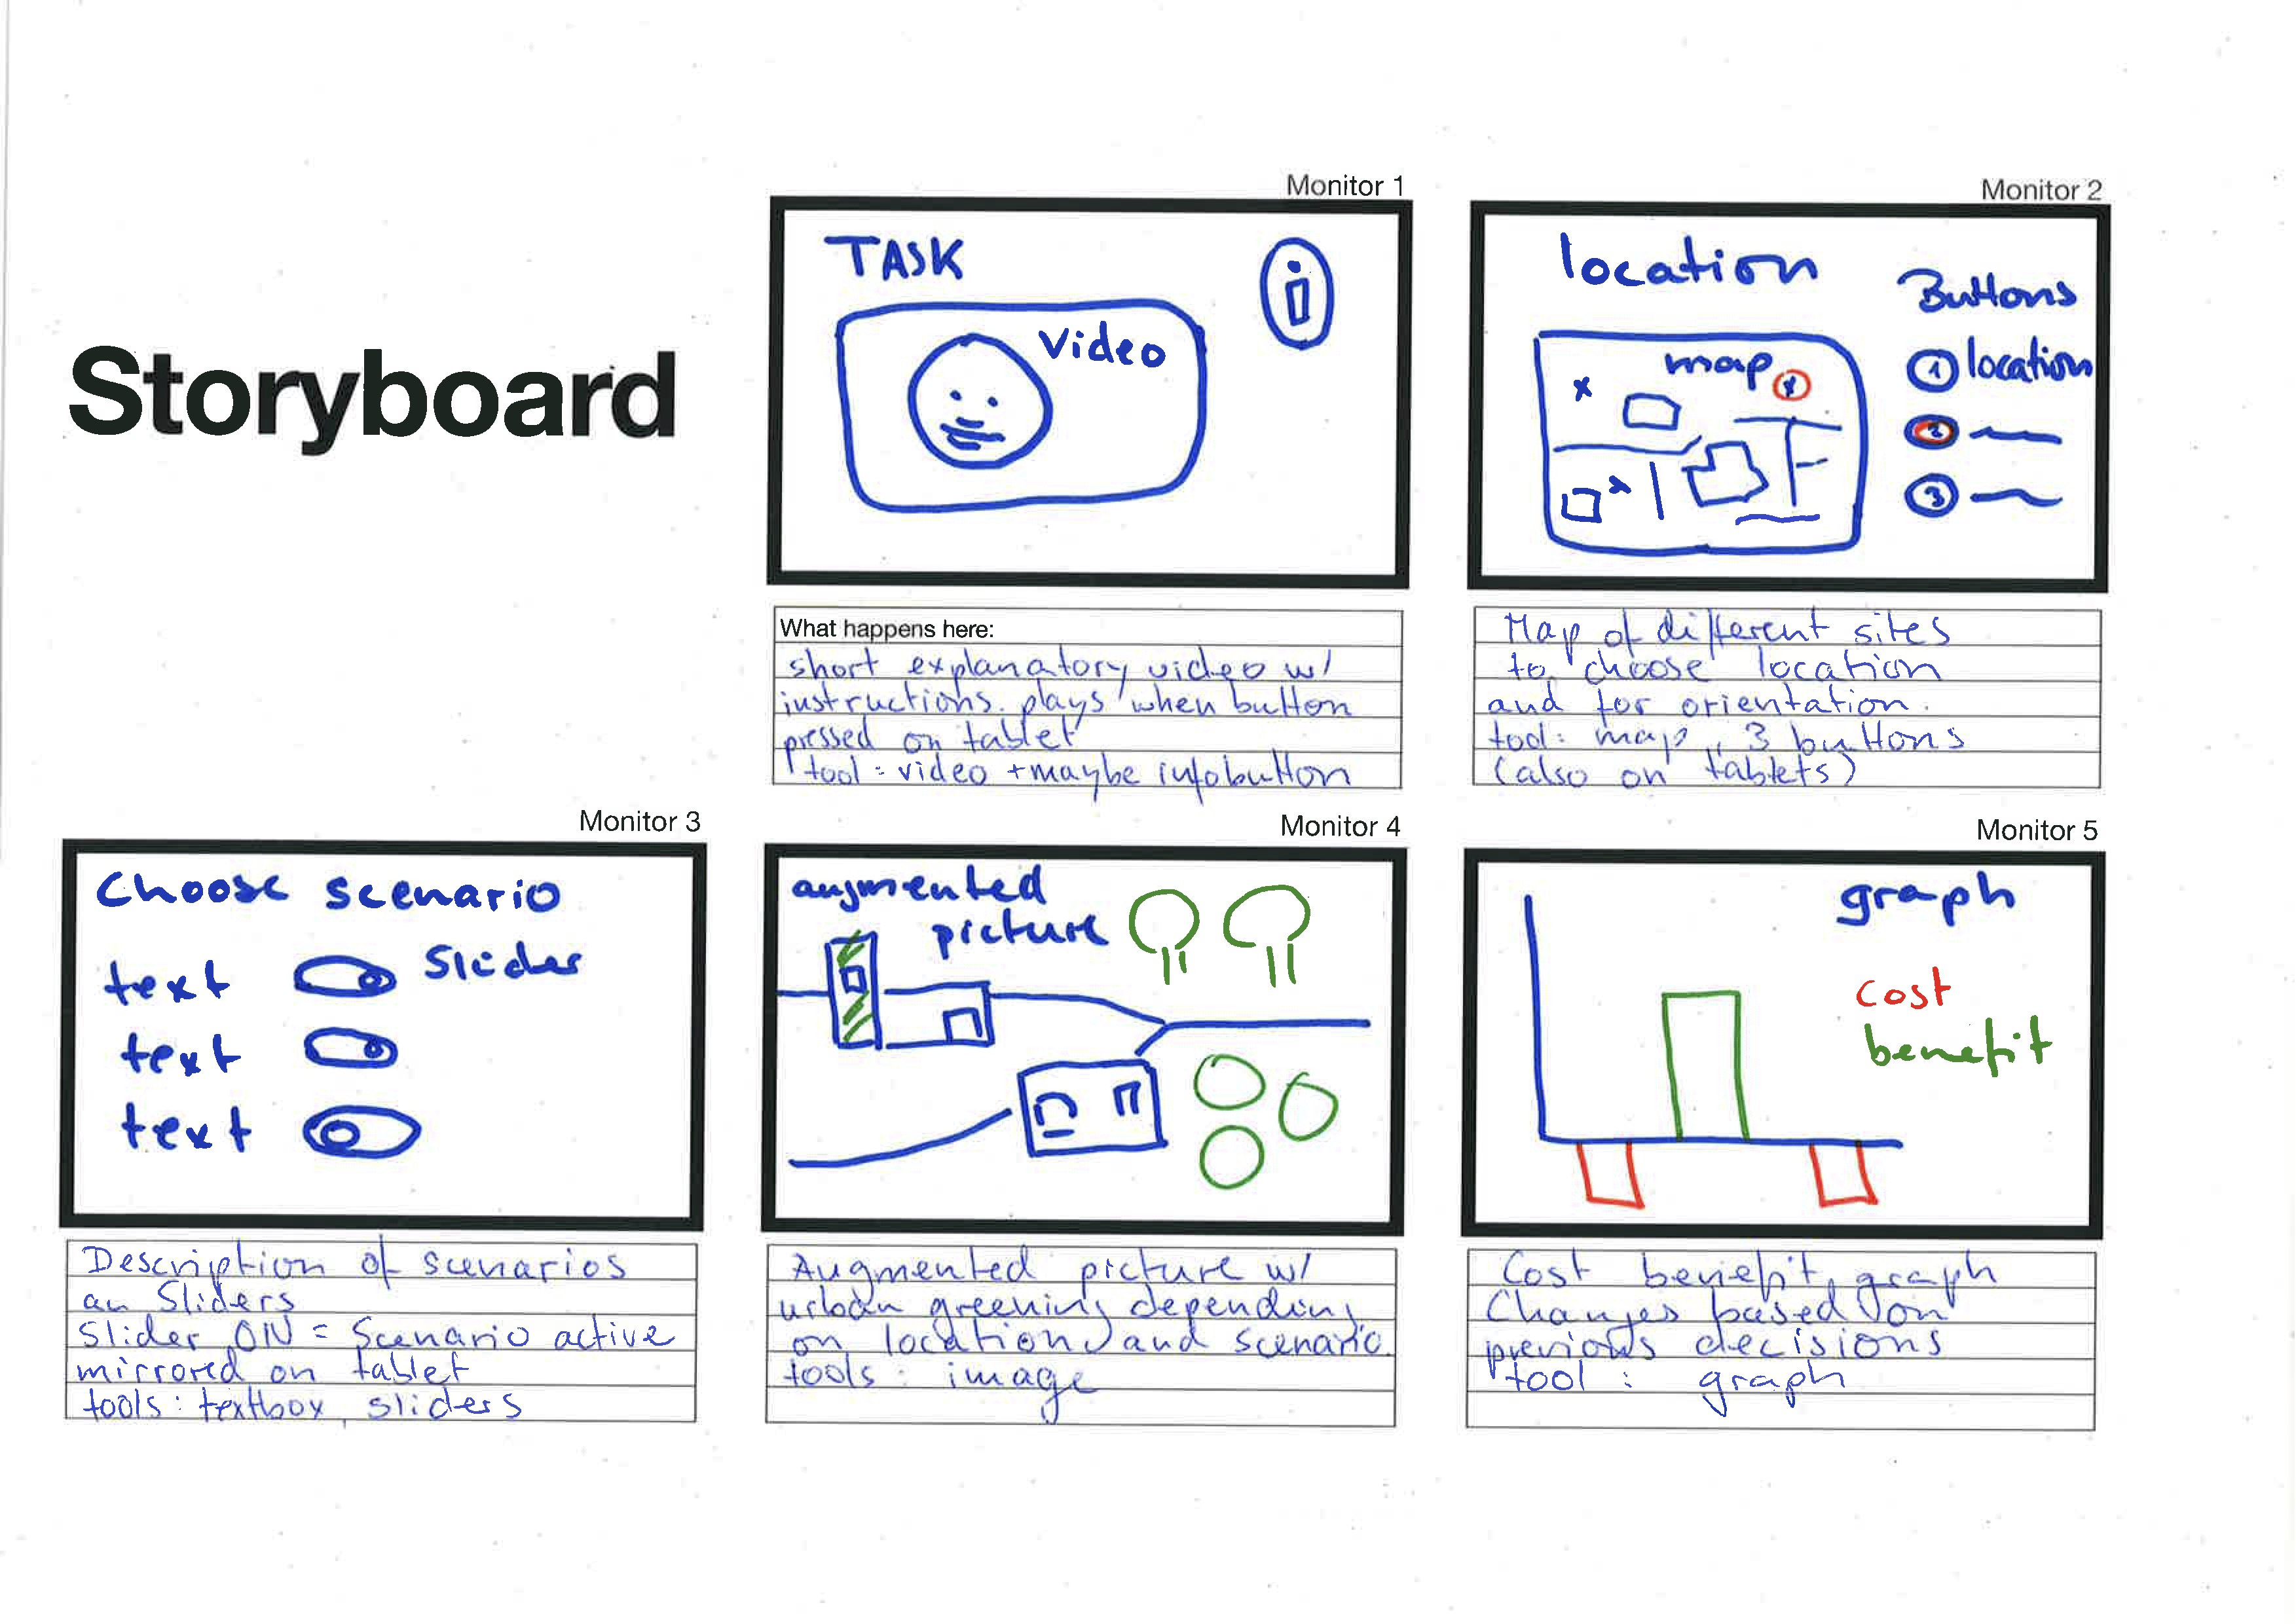 Storyboard
Monitor 1
TASK
i
Video
What happens here:
short explanatory video w/
instructions. plays when button
pressed on tablet
tool = video + maybe infobutton
Monitor 2
location
Buttons
map x
x
x
1 location
2
3
Map of different sites
to choose location
and for orientation.
tool: map, 3 buttons
(also on tablets)
Monitor 3
Choose scenario
text Slider
text
text
Description of scenarios
an Sliders
Slider ON = Scenario active
mirrored on tablet
tools: textbox, sliders
Monitor 4
augmented
picture
Augmented picture w/
urban greening depending
on location and scenario.
tools: image
Monitor 5
graph
cost
benefit
Cost benefit graph
Changes based on
previous decisions
tool: graph